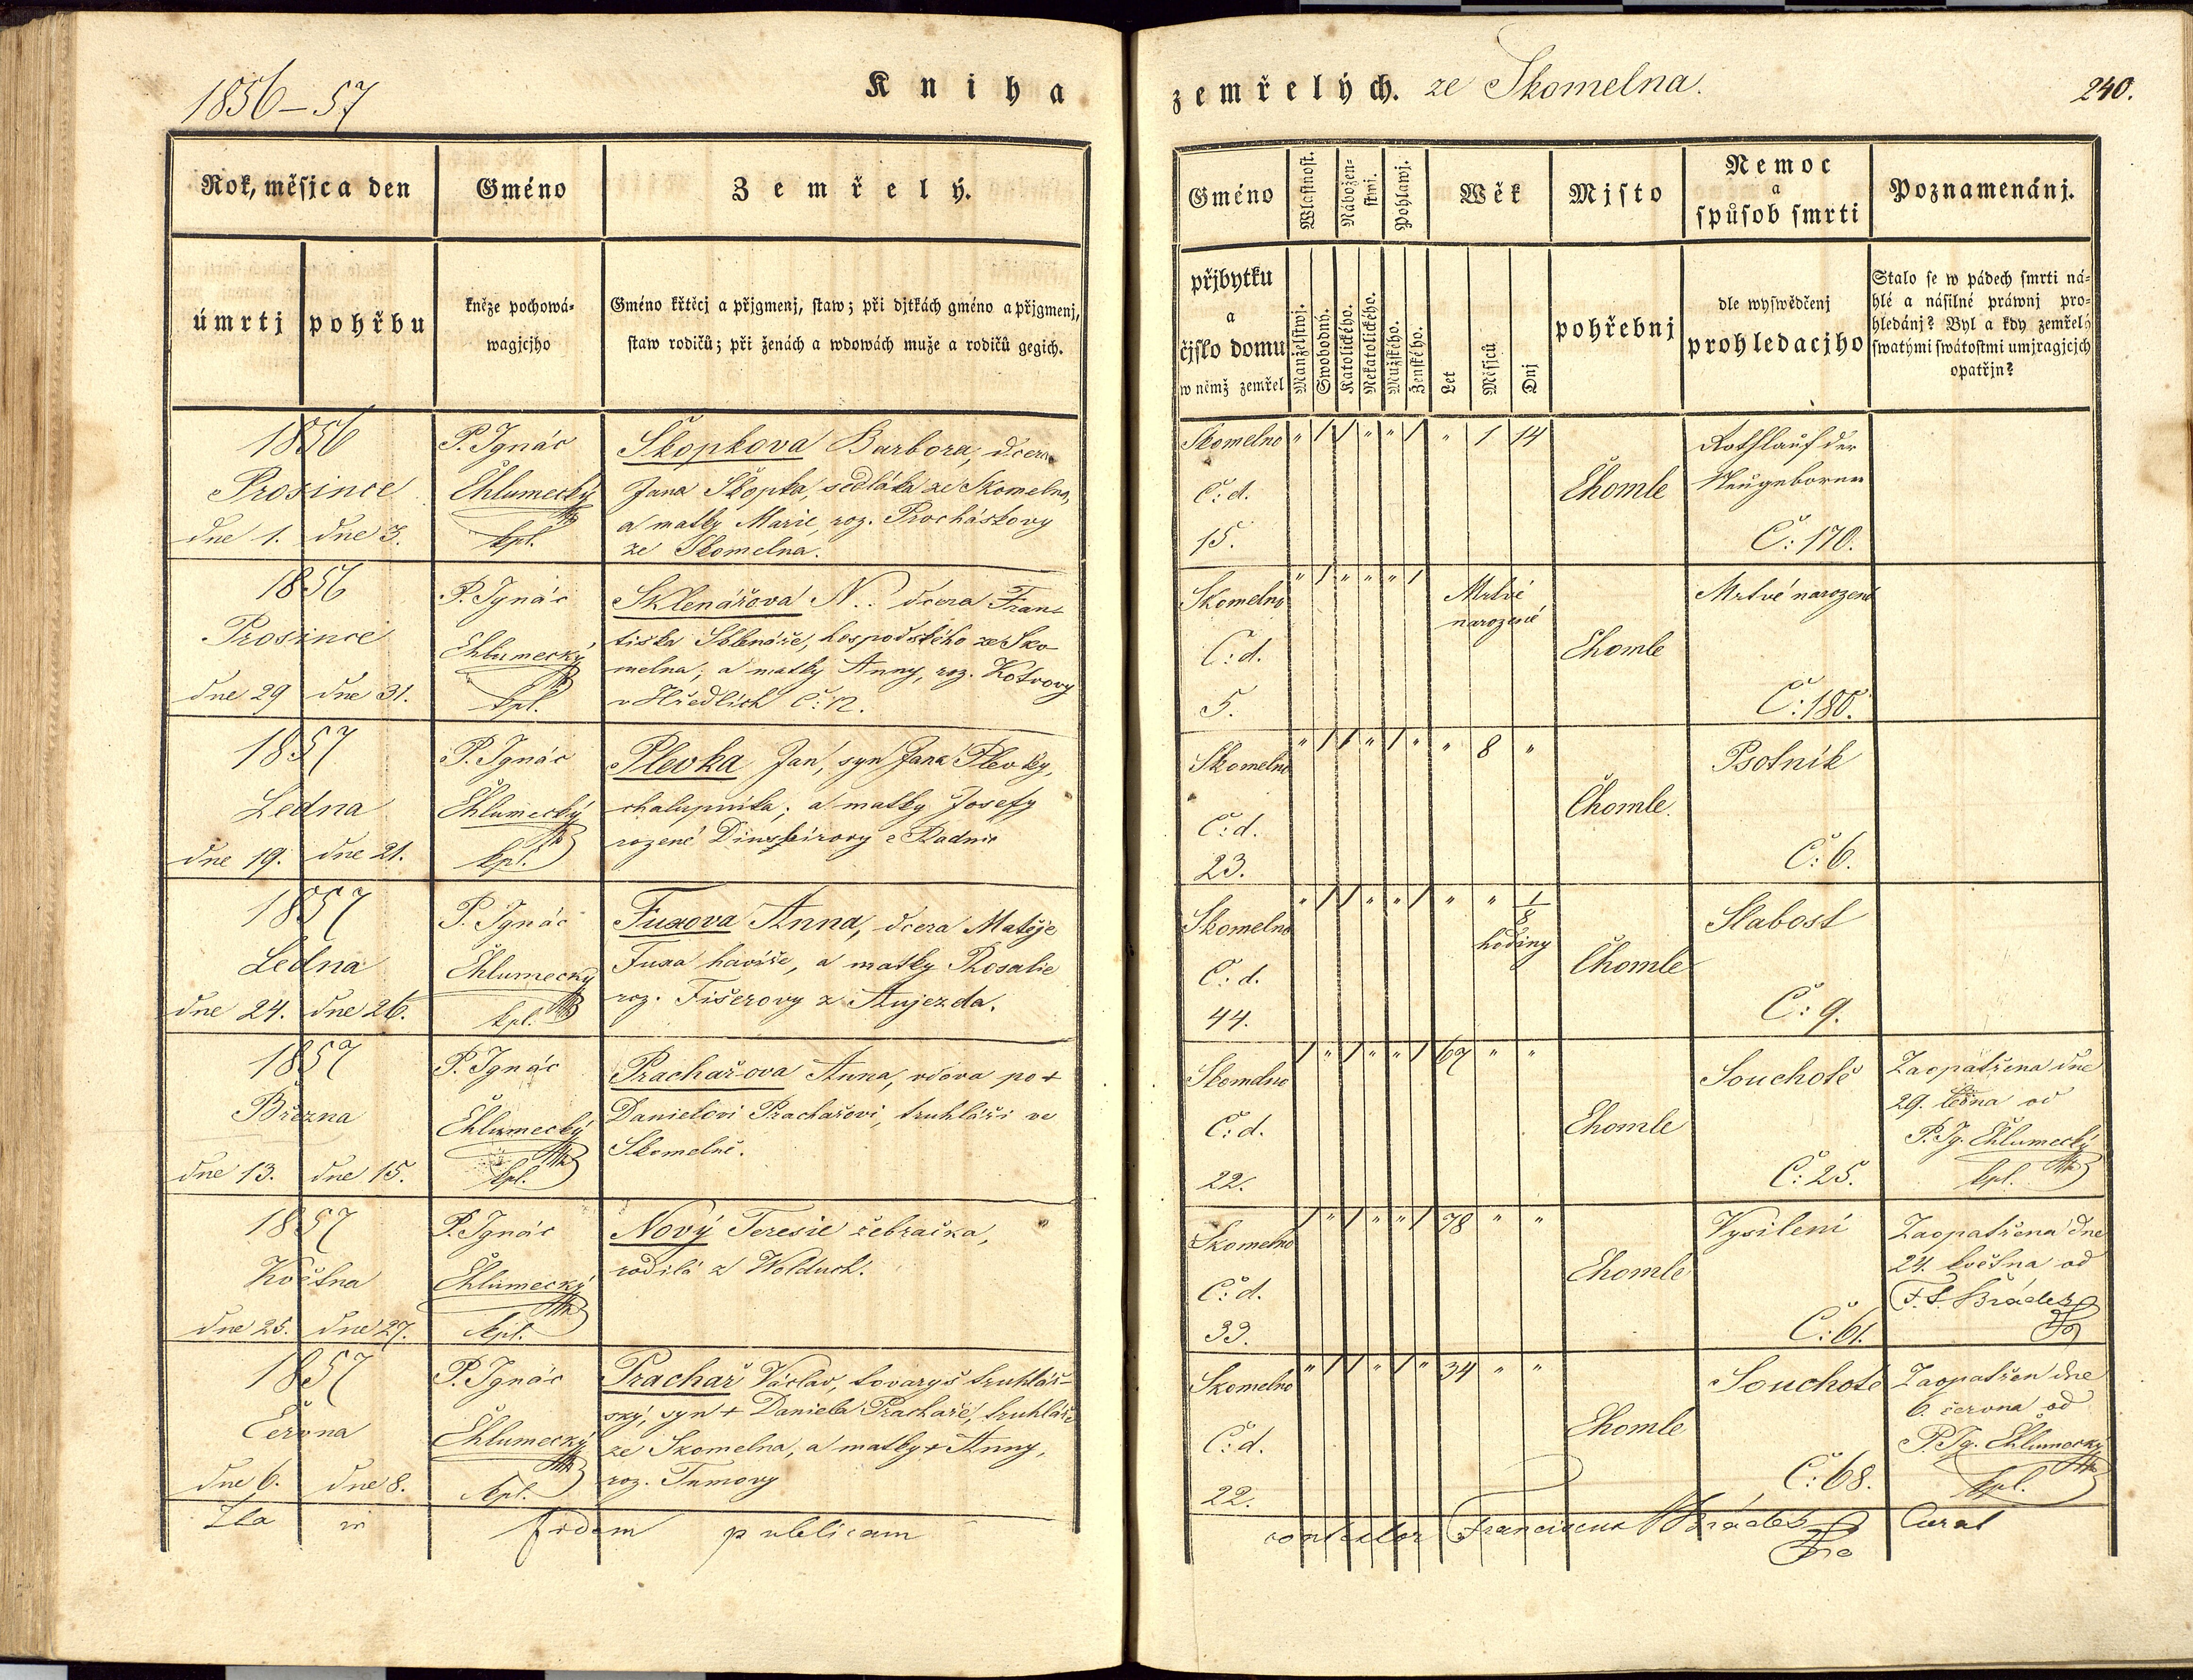 1856–57
Kniha
zemřelých. ze Skomelna.
240.
Rok, měsjc a den
Gméno
Zemřelý.
úmrtj
pohřbu
kněze pochowá-
wagjcjho
Gméno křtěcj a přjgmenj, staw; při djtkách gméno a přjgmenj,
staw rodičů; při ženách a wdowách muže a rodičů gegich.
Gméno
přjbytku
a
čjslo domu
w němž zemřel
Wlastnost.
Nábožen-
stwj.
Pohlawj.
Wěk
Mjsto
pohřebnj
Nemoc
a
spůsob smrti
dle wyswědčenj
prohledacjho
Poznamenánj.
Stalo se w pádech smrti ná-
hlé a násilné práwnj pro-
hledánj? Byl a kdy zemřelý
swatými swátostmi umjragjcjch
opatřjn?
Manželstwj.
Swobodný.
Katolického.
Nekatolického.
Mužského.
Ženského.
Let
Měsjců
Dnj
1856
Prosince
dne 1. dne 3.
P. Ignác
Chlumecký
kpl.
Škopkova Barbora, dcera
Jana Škopka, sedláka ze Skomelna,
a matky Marie, roz. Procháskovy
ze Skomelna.
Skomelno " 1 1 " " 1 " 1 14
Č: d.
15.
Chomle
Rothlauf der
Neugebornen
Č: 170.
1856
Prosince
dne 29 dne 31.
P. Ignác
Chlumecký
kpl.
Sklenářová N.. dcera Fran-
tiska Sklenáře, hospodského ze Sko-
melna; a matky Anny, roz. Kotvovy
v Hředlích Č: 12.
Skomelno " 1 " " " 1
Mrtvé
narozené
Č: d.
5.
Chomle
Mrtvé narozené
Č: 180.
1857
Ledna
dne 19. dne 21.
P. Ignác
Chlumecký
kpl.
Plevka Jan, syn Jana Plevky,
chalupníka; a matky Josefy
rozené z Radnic
Skomelno " 1 1 " 1 " " 8 "
Č: d.
23.
Chomle.
Psotník
Č: 6.
1857
Ledna
dne 24. dne 26.
P. Ignác
Chlumecký
kpl.
Fuxova Anna, dcera Matěje
Fuxa havíře, a matky Rosalie
roz. Fišerovy z Aujezda.
Skomelno " 1 1 " " 1 " " 1/8
hodiny
Č: d.
44.
Chomle
Slabost
Č: 9.
1857
Března
dne 13. dne 15.
P. Ignác
Chlumecký
kpl.
Prachařova Anna, vdova po +
Danielovi Prachařovi, truhláři ve
Skomelně.
Skomelno 1 " 1 " " 1 67 " "
Č: d.
22.
Chomle
Souchotě
Č: 25.
Zaopatřena dne
29. ledna od
P. Ig. Chlumecký
kpl.
1857
Května
dne 25. dne 27.
P. Ignác
Chlumecký
kpl.
Nový Teresie žebračka,
rodilá z Wolduch.
Skomelno 1 " 1 " " 1 78 " "
Č: d.
33.
Chomle
Vysilení
Č: 61.
Zaopatřena dne
24. května od
F. S. Brádes
1857
Června
dne 6. dne 8.
P. Ignác
Chlumecký
kpl.
Prachař Václav, tovaryš truhlář-
ský, syn + Daniela Prachaře, truhláře
ze Skomelna, a matky + Anny,
roz. Tumovy
Skomelno " 1 1 " 1 " 34 " "
Č: d.
22.
Chomle
Souchotě
Č: 68.
Zaopatřen dne
6. června od
P. Ig. Chlumecký
kpl.
Ita in fidem publicam
contestor Franciscus Brádes Curat